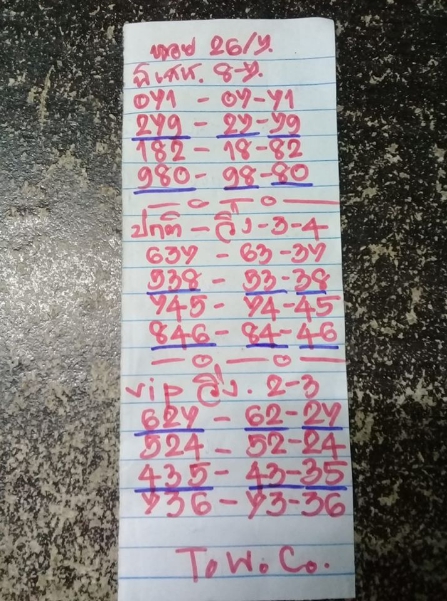 หวย 26/7.
พิเศษ. 8-7.
071 - 07-71
279 - 27-79
182 - 18-82
980 - 98-80
ปกติ - วิ่ง - 3-4
637 - 63-37
538 - 53-38
745 - 74-45
846 - 84-46
vip วิ่ง. 2-3
627 - 62-27
524 - 52-24
435 - 43-35
736 - 73-36
T.W.C.